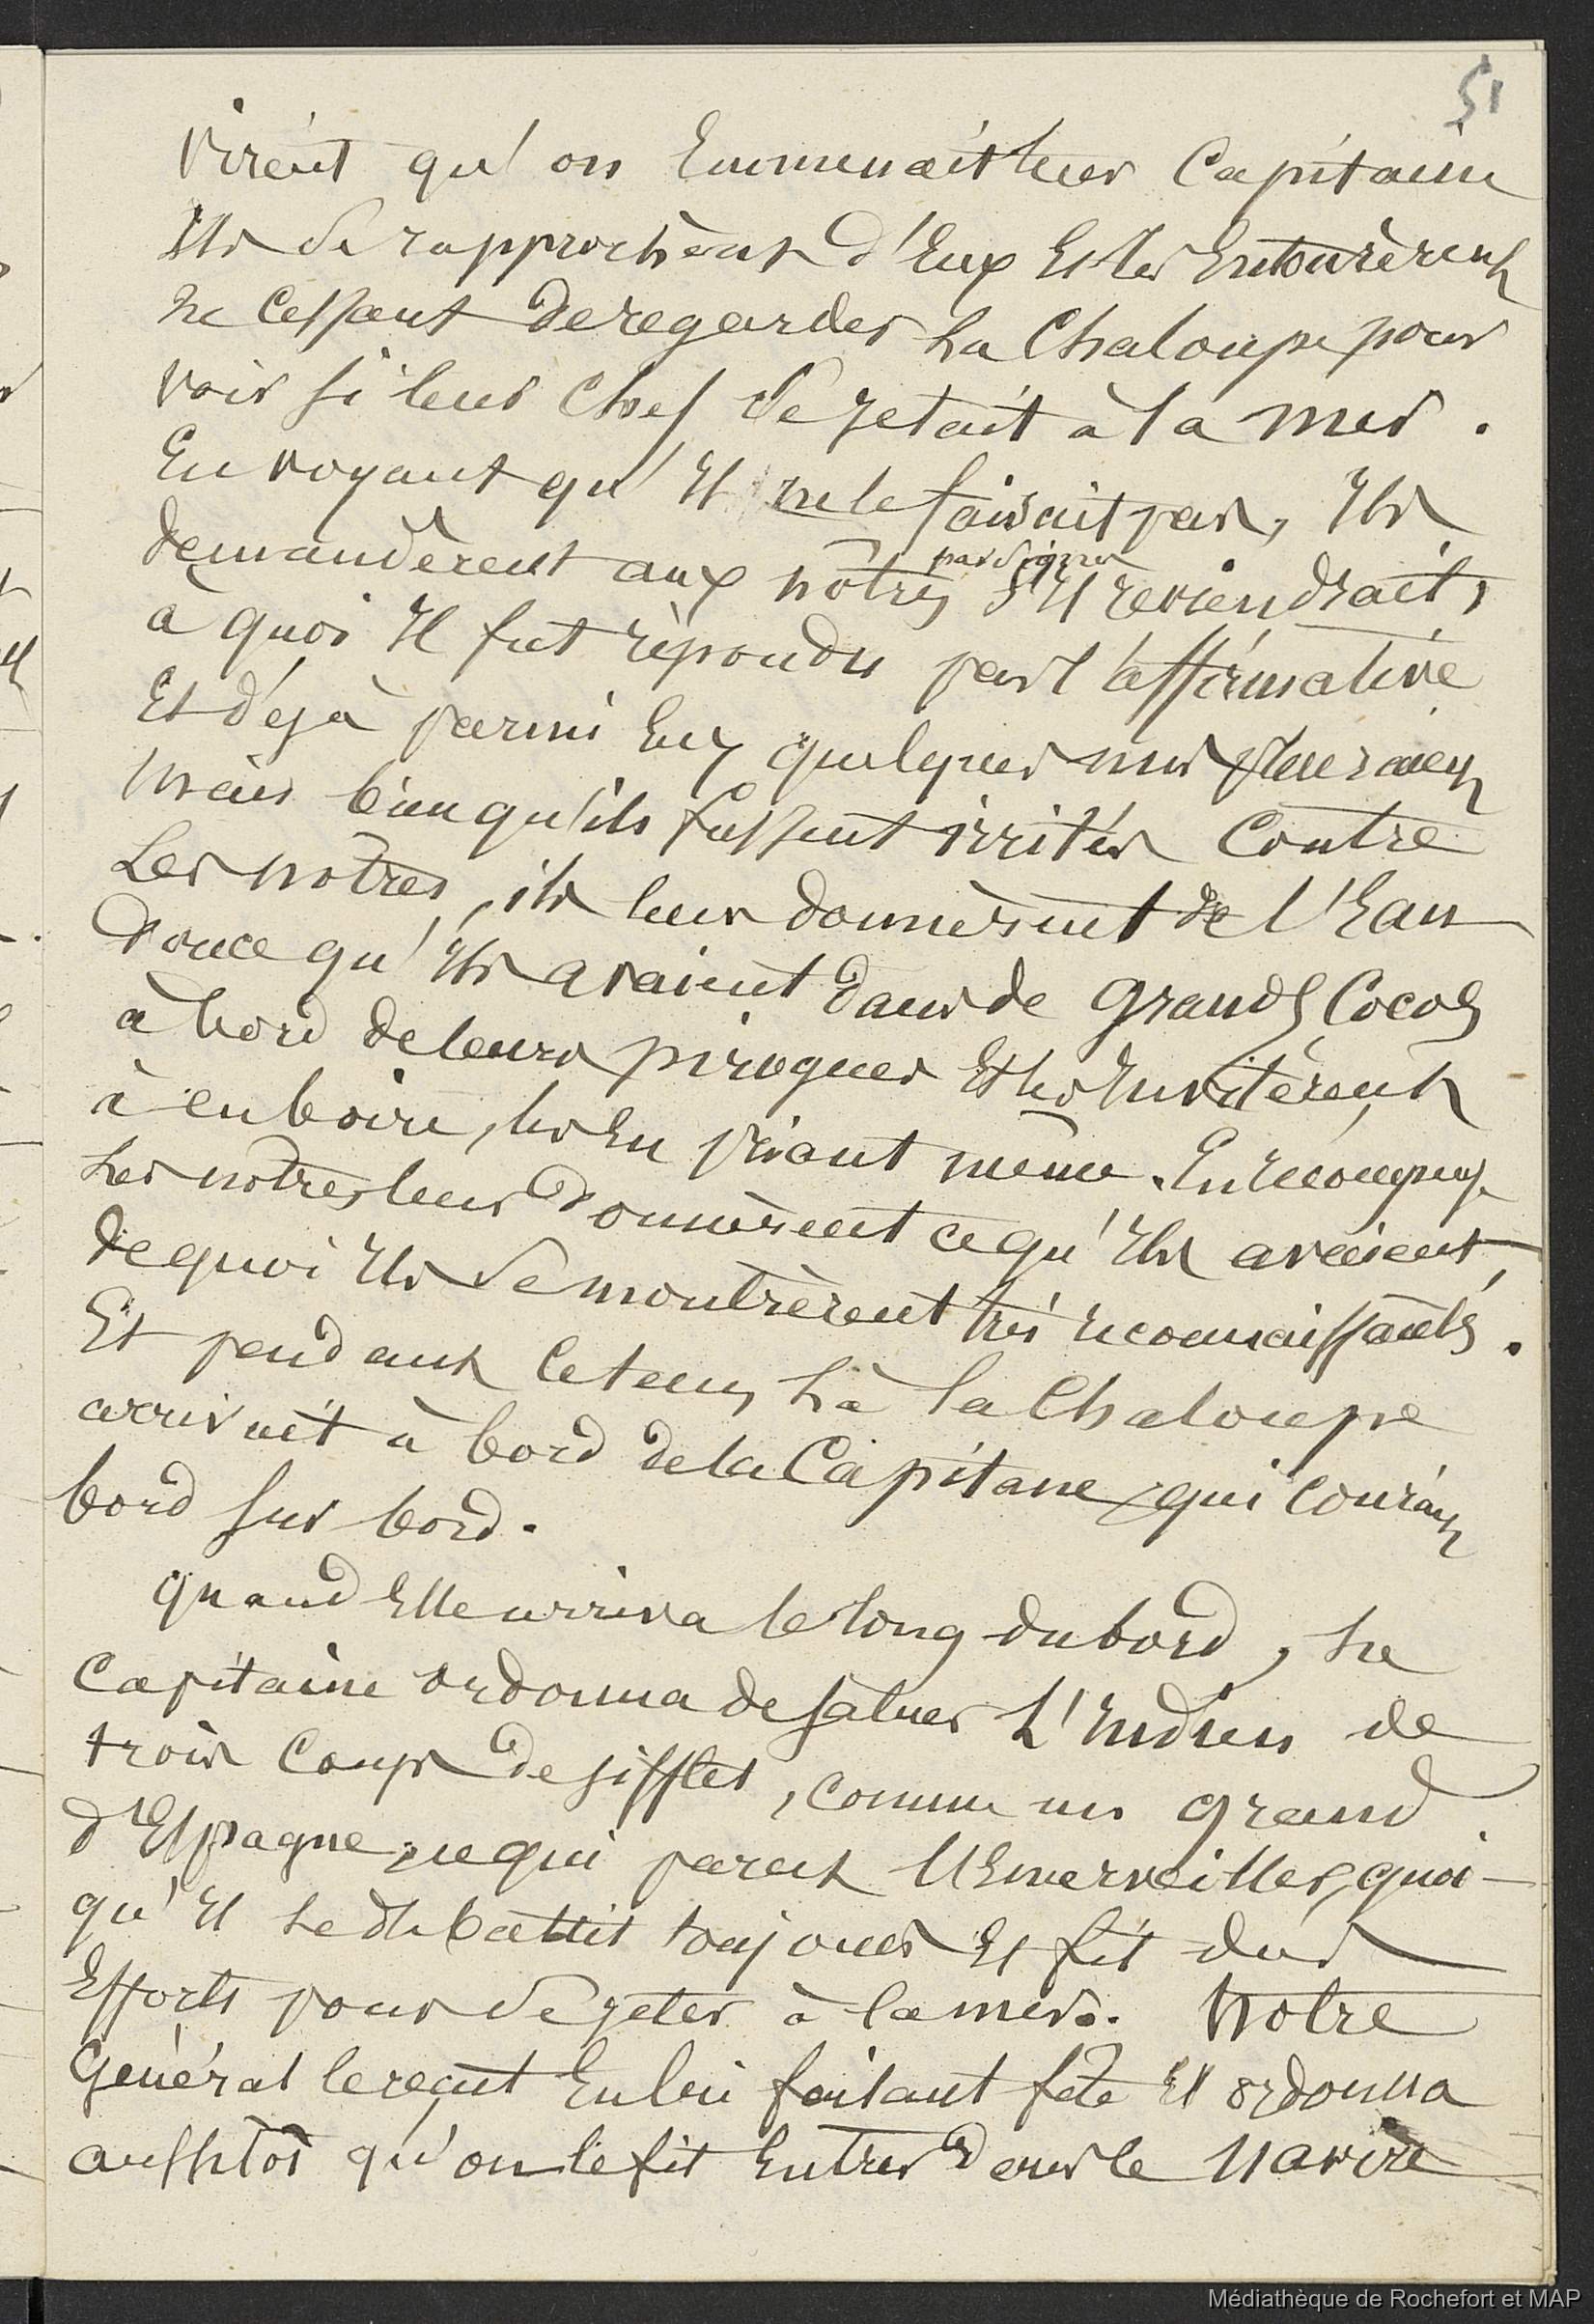 51
virent qu'on Emmenait leur Capitaine
Ils se rapprochèrent d'Eux Et les Entourèrent
ne Cessant de regarder La Chaloupe pour
voir si leur Chef se jetait à la mer.
En voyant qu'Il ne le faisait pas, Ils
par signes
demandèrent aux nôtres S'Il reviendrait,
à quoi Il fut répondu par l'affirmative
Et déjà parmi Eux quelques uns pleuraient
Mais bien qu'ils fussent irrités Contre
Les nôtres, ils leur donnèrent de l'Eau
douce qu'Ils avaient dans de grands Cocos
à bord de leurs pirogues Et les Invitèrent
à en boire, les En priant même. En récompense
Les nôtres leur donnèrent ce qu'Ils avaient,
de quoi Ils se montrèrent très reconnaissants.
Et pendant ce tems Là la Chaloupe
arrivait à bord de la Capitane qui courait
bord sur bord.
Quand Elle arriva le long du bord, Le
Capitaine ordonna de saluer L'Indien de
trois Coups de sifflet, comme un grand
d'Espagne, ce qui parut l'Emerveiller, quoi-
qu'Il se débattit toujours Et fit des
Efforts pour se jeter à la mer. Notre
Général le reçut En lui faisant fête Et ordonna
aussitôt qu'on le fit Entrer dans le Navire
Médiathèque de Rochefort et MAP